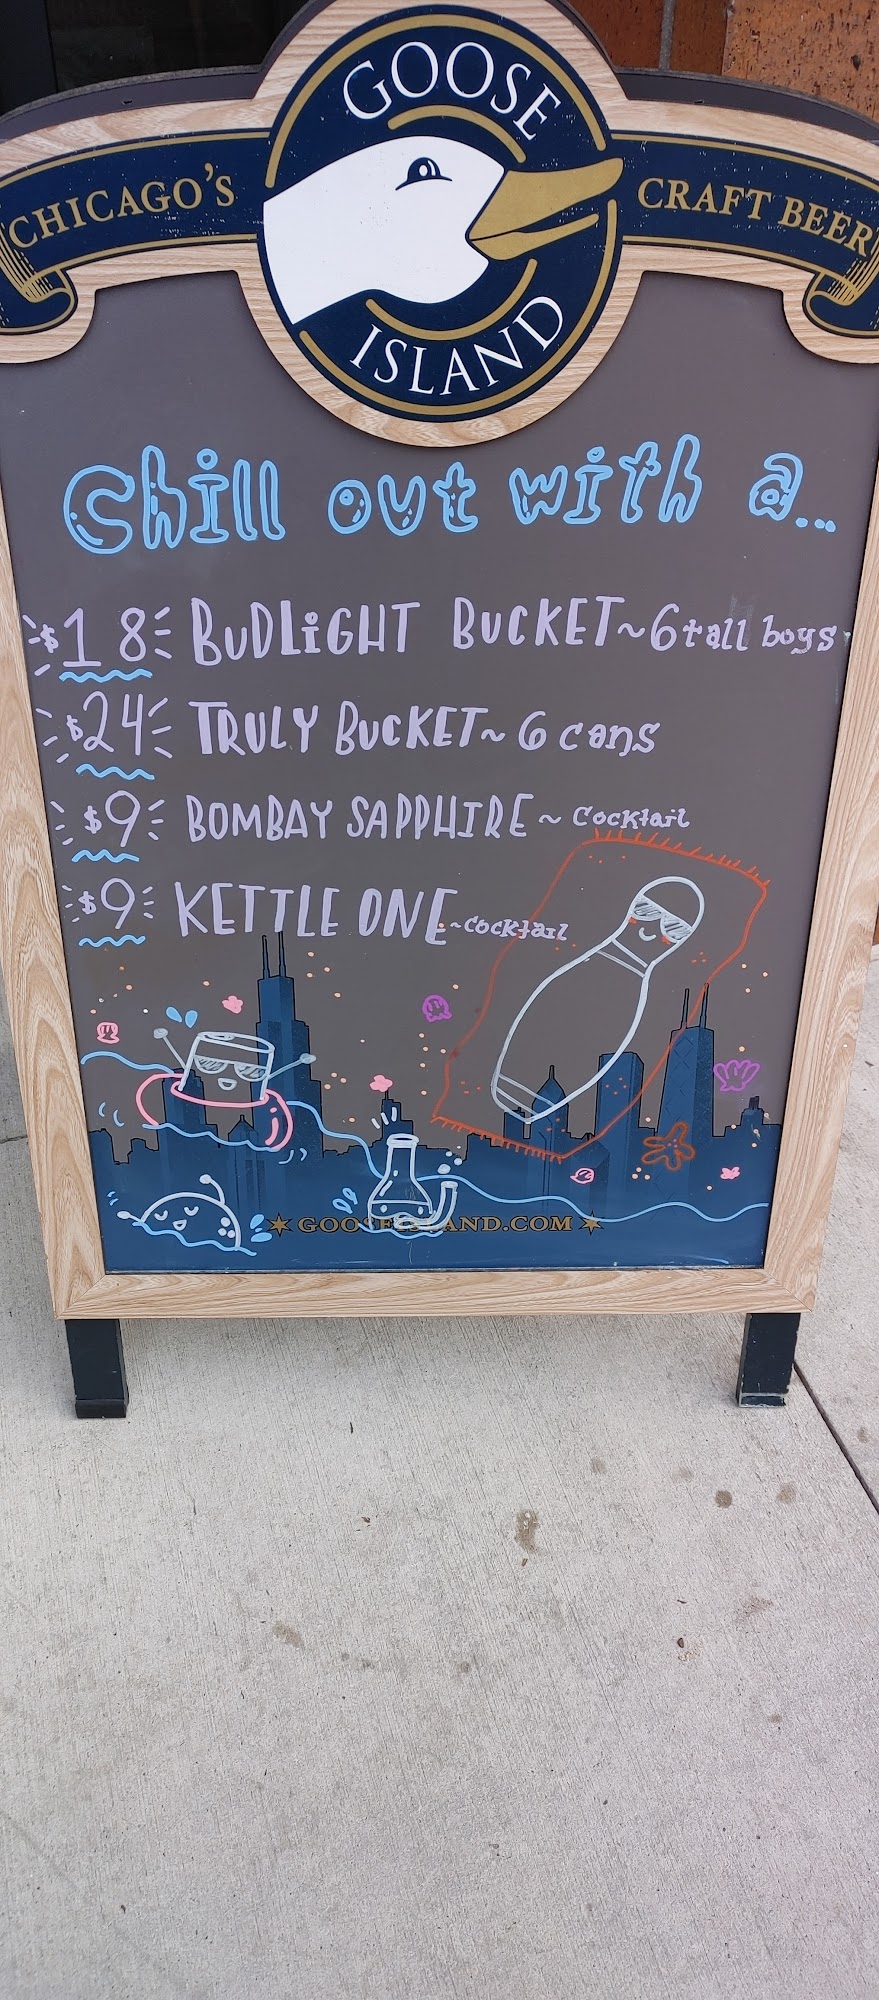 GOOSE
CHICAGO'S
CRAFT BEER
ISLAND
Chill out with a...
$18 BUDLiGHT BUCKET~6 tall boys
$24 TRULY BUCKET~ 6 cans
$9 BOMBAY SAPPHIRE ~ Cocktail
$9 KETTLE ONE ~cocktail
GOOSEISLAND.COM